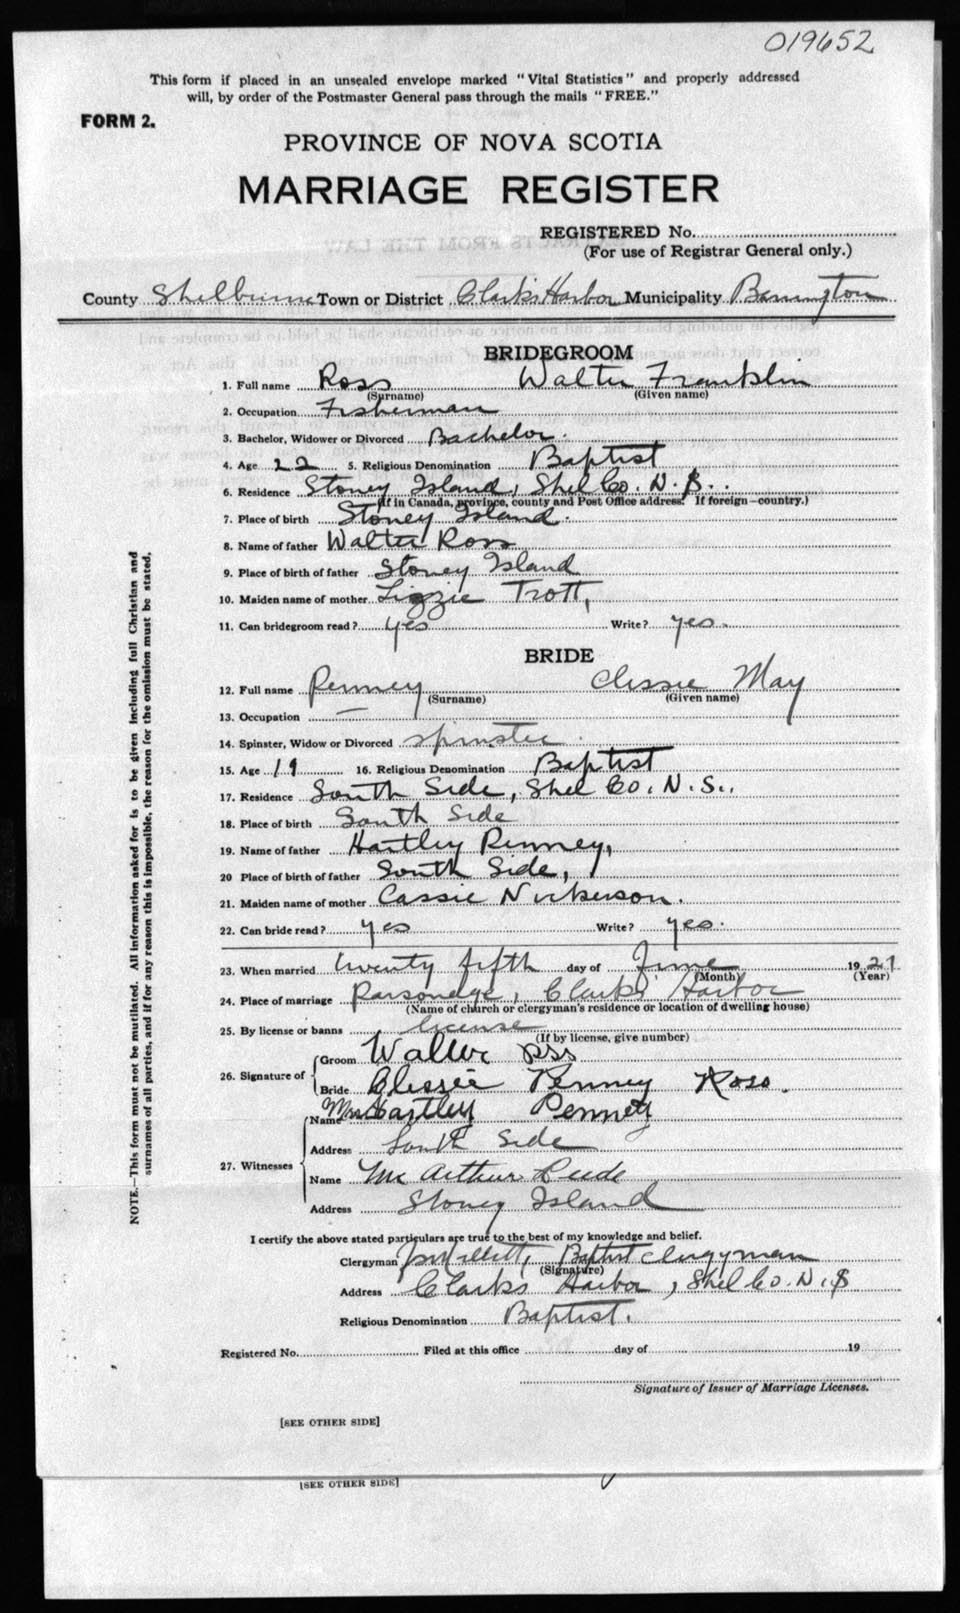 019652
This form if placed in an unsealed envelope marked "Vital Statistics" and properly addressed
will, by order of the Postmaster General pass through the mails "FREE."
FORM 2.
PROVINCE OF NOVA SCOTIA
MARRIAGE REGISTER
REGISTERED No.
(For use of Registrar General only.)
County Shelburne Town or District Clark's Harbor Municipality Barrington
BRIDEGROOM
1. Full name Ross Walter Franklin
(Surname) (Given name)
2. Occupation Fisherman
3. Bachelor, Widower or Divorced Bachelor.
4. Age 22 5. Religious Denomination Baptist
6. Residence Stoney Island, Shel Co. N.S.
(If in Canada, province, county and Post Office address. If foreign—country.)
7. Place of birth Stoney Island.
8. Name of father Walter Ross
9. Place of birth of father Stoney Island
10. Maiden name of mother Lizzie Trott,
11. Can bridegroom read? yes Write? yes.
BRIDE
12. Full name Penney Clissie May
(Surname) (Given name)
13. Occupation —
14. Spinster, Widow or Divorced Spinster.
15. Age 19 16. Religious Denomination Baptist
17. Residence South Side, Shel Co. N.S.,
18. Place of birth South Side
19. Name of father Hartley Penney,
20 Place of birth of father South Side,
21. Maiden name of mother Cassie Nickerson.
22. Can bride read? yes Write? yes.
23. When married twenty fifth day of June 1927
(Month) (Year)
24. Place of marriage Parsonage, Clark's Harbor
(Name of church or clergyman's residence or location of dwelling house)
25. By license or banns license
(If by license, give number)
26. Signature of Groom Walter
Bride Clissie Penney Ross.
27. Witnesses Name Mrs Hartley Penney
Address South Side
Name Mc Arthur
Address Stoney Island
I certify the above stated particulars are true to the best of my knowledge and belief.
Clergyman Baptist Clergyman
(Signature)
Address Clark's Harbor, Shel Co. N.S
Religious Denomination Baptist.
Registered No. Filed at this office day of 19
Signature of Issuer of Marriage Licenses.
[SEE OTHER SIDE]
[SEE OTHER SIDE]
NOTE.—This form must not be mutilated. All information asked for is to be given including full Christian and
surnames of all parties, and if for any reason this is impossible, the reason for the omission must be stated.